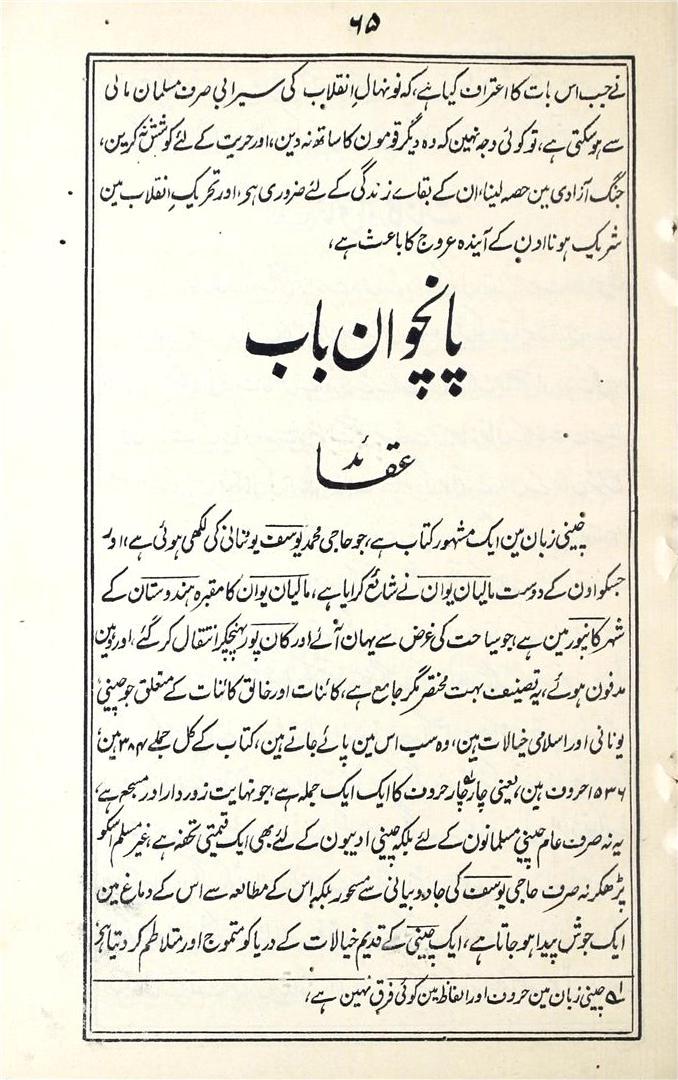 ۶۵
نے جب اس بات کا اعتراف کیا ہے، کہ نو نہالِ انقلاب کی سیرابی صرف مسلمان مالی
سے ہو سکتی ہے، تو کوئی وجہ نہین کہ وہ دیگر قومون کا ساتھ نہ دین، اور حریت کے لئے کوشش نہ کرین،
جنگ آزادی مین حصہ لینا، ان کے بقاے زندگی کے لئے ضروری ہے، اور تحریکِ انقلاب مین
شریک ہونا اون کے آیندہ عروج کا باعث ہے،
پانچوان باب
عقائد
چینی زبان مین ایک مشہور کتاب ہے، جو حاجی محمد یوسف یونانی کی لکھی ہوئی ہے، اور
جسکو اون کے دوست مالیان یوان نے شائع کرایا ہے، مالیان یوان کا مقبرہ ہندوستان کے
شہر کانپور مین ہے، جو سیاحت کی غرض سے یہان آئے اور کان پور پہنچکر انتقال کر گئے، اور وہین
مدفون ہوئے، یہ تصنیف بہت مختصر مگر جامع ہے، کائنات اور خالق کائنات کے متعلق جو چینی
یونانی اور اسلامی خیالات ہین، وہ سب اس مین پائے جاتے ہین، کتاب کے کل جملے ۳۸۴ ہین
۱۵۳۶ حروف ہین، یعنی چار چار حروف کا ایک ایک جملہ ہے، جو نہایت زور دار اور مسجع ہے،
یہ نہ صرف عام چینی مسلمانون کے لئے بلکہ چینی ادیبون کے لئے بھی ایک قیمتی تحفہ ہے، غیر مسلم اسکو
پڑھکر نہ صرف حاجی یوسف کی جادو بیانی سے مسحور بلکہ اس کے مطالعہ سے اس کے دماغ مین
ایک جوش پیدا ہو جاتا ہے، ایک چینی کے قدیم خیالات کے دریا کو متموج اور متلاطم کر دیتا ہے
۱؎ چینی زبان مین حروف اور الفاظ مین کوئی فرق نہین ہے،